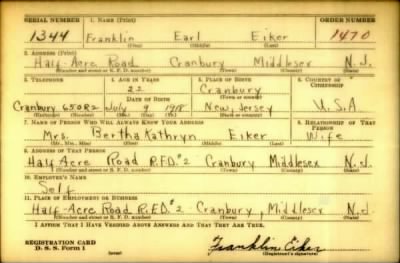 SERIAL NUMBER 1. NAME (Print) ORDER NUMBER
1344 Franklin Earl Eiker 1470
(First) (Middle) (Last)
2. ADDRESS (Print)
Half-Acre Road Cranbury Middlesex N.J.
(Number and street or R. F. D. number) (Town) (County) (State)
3. TELEPHONE 4. AGE IN YEARS 5. PLACE OF BIRTH 6. COUNTRY OF CITIZENSHIP
22 Cranbury
DATE OF BIRTH (Town or county)
Cranbury 650R2 July 9 1918 New Jersey U.S.A
(Exchange) (Number) (Mo.) (Day) (Yr.) (State or country)
7. NAME OF PERSON WHO WILL ALWAYS KNOW YOUR ADDRESS 8. RELATIONSHIP OF THAT PERSON
Mrs. Bertha Kathryn Eiker Wife
(Mr., Mrs., Miss) (First) (Middle) (Last)
9. ADDRESS OF THAT PERSON
Half Acre Road R.F.D. #2 Cranbury Middlesex N.J.
(Number and street or R. F. D. number) (Town) (County) (State)
10. EMPLOYER'S NAME
Self
11. PLACE OF EMPLOYMENT OR BUSINESS
Half-Acre Road R.F.D. #2. Cranbury, Middlesex N.J.
(Number and street or R. F. D. number) (Town) (County) (State)
I AFFIRM THAT I HAVE VERIFIED ABOVE ANSWERS AND THAT THEY ARE TRUE.
REGISTRATION CARD
D. S. S. Form 1
(over)
Franklin Eiker
(Registrant's signature)